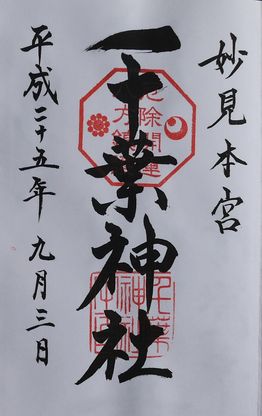 妙見本宮
千葉神社
平成二十五年九月三日
厄除開運
千葉
神社